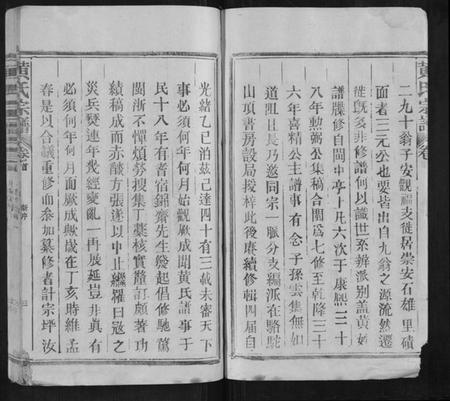 黃氏宗譜
卷
二九十翁子安觀福支徙居崇安石雄里磧
面者三元公也要皆出自九翁之源流然遷
徙旣多非修譜何以識世系辨派别盖黃姓
譜牒修自閩中亭十凡六次于康熙三十
八年勲弼公集稿合閤爲七修至乾隆三十
六年喜精公主譜事有念子孫雲集無如
道阻且長乃邀同宗一脈分支編派在駱駝
山項書房設局授梓此後賡續修輯四届自
光緒乙巳泊茲已達四十有三載未審天下
事必須何年何月始觀厥成聞黃氏譜事于
民十八年有耆宿錦齋先生發起倡修馳蔦
閩浙不憚煩勞搜集丁藁核實釐訂頗著功
績稿成而赤燄方張遂以中止繼罹日冦之
災兵燹連年幾經變亂一再展延豈非眞有
必須何年何月而厥成歟歲在丁亥時維孟
春是以合議重修而參加纂修者計宗坪汝
黃氏宗譜
卷首